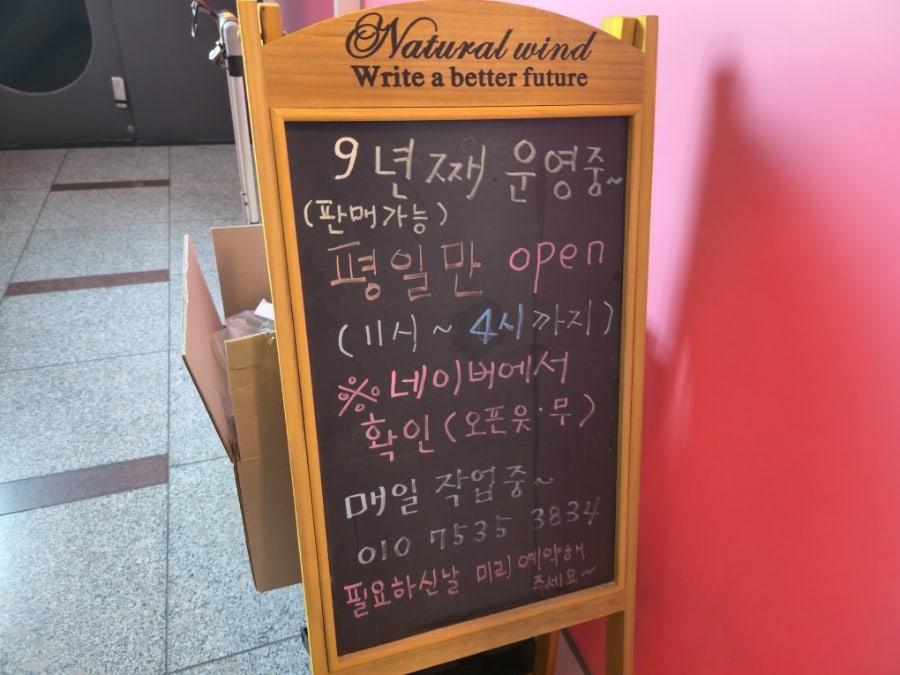 Natural wind
Write a better future
9년째 운영중~
(판매가능)
평일만 open
(11시~4시까지)
※네이버에서
확인(오픈윳·무)
매일 작업중~
010 7535 3834
필요하신날 미리 예약해
주세요~